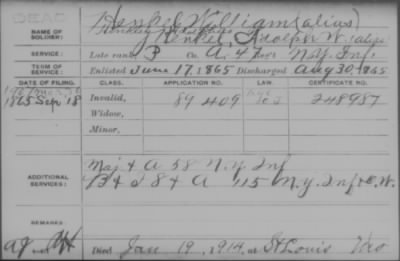 DEAD
NAME OF SOLDIER:
Henkel, William (alias)
Henkel, Adolph W. (alias)
SERVICE:
Late rank, P Co. A, 47 Reg't N.Y. Inf.
TERM OF SERVICE:
Enlisted June 17, 1865 Discharged Aug 30, 1865
DATE OF FILING.
CLASS.
APPLICATION NO.
LAW.
CERTIFICATE NO.
1865 Sep 18
Invalid,
89 409
248987
Widow,
Minor,
ADDITIONAL SERVICES:
Maj & A 58 N.Y. Inf
B & I 8 & A 115 N.Y. Inf & C.W.
REMARKS:
Died Jan 19, 1914, at St Louis Mo